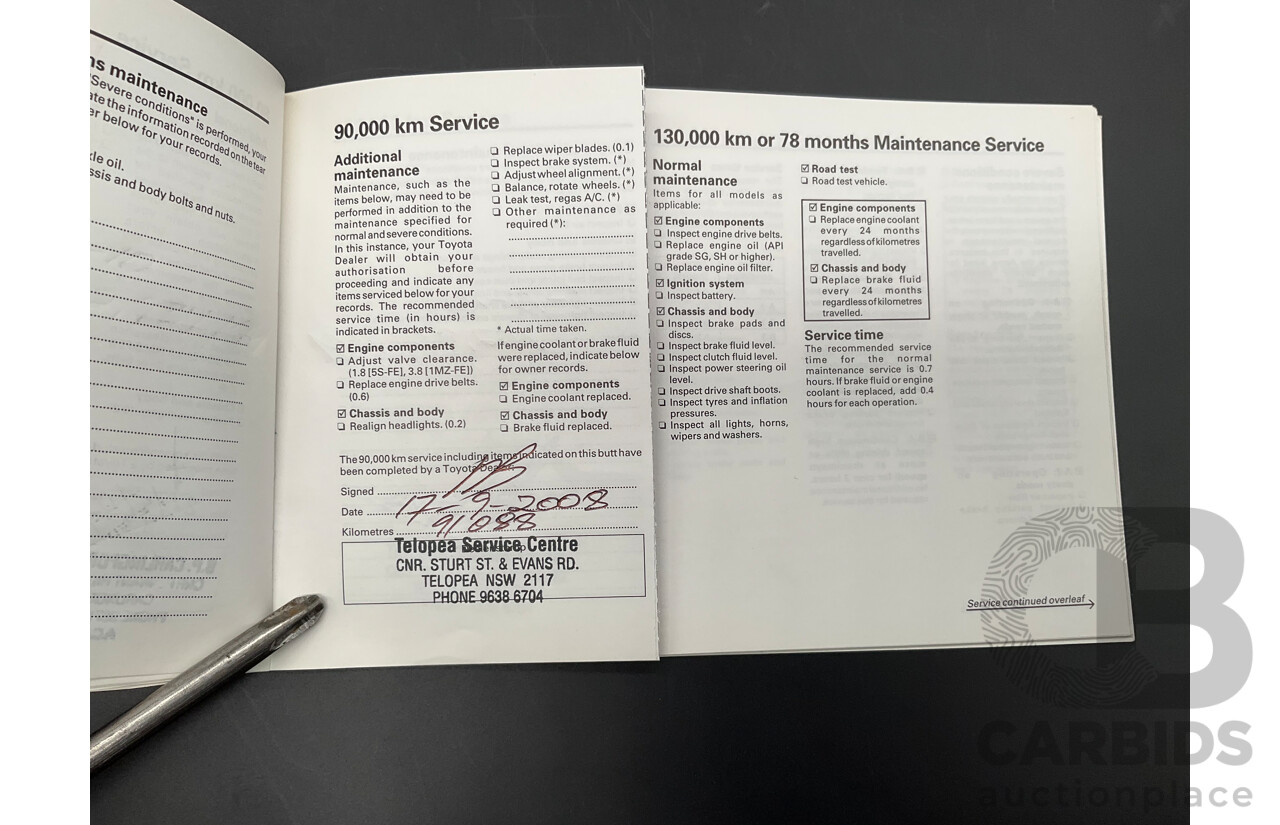 ns maintenance
"Severe conditions" is performed, your
ate the information recorded on the tear
er below for your records.
cle oil.
ssis and body bolts and nuts.
90,000 km Service
Additional
maintenance
Maintenance, such as the
items below, may need to be
performed in addition to the
maintenance specified for
normal and severe conditions.
In this instance, your Toyota
Dealer will obtain your
authorisation before
proceeding and indicate any
items serviced below for your
records. The recommended
service time (in hours) is
indicated in brackets.
☑ Engine components
❏ Adjust valve clearance.
(1.8 [5S-FE], 3.8 [1MZ-FE])
❏ Replace engine drive belts.
(0.6)
☑ Chassis and body
❏ Realign headlights. (0.2)
❏ Replace wiper blades. (0.1)
❏ Inspect brake system. (*)
❏ Adjust wheel alignment. (*)
❏ Balance, rotate wheels. (*)
❏ Leak test, regas A/C. (*)
❏ Other maintenance as
required (*):
* Actual time taken.
If engine coolant or brake fluid
were replaced, indicate below
for owner records.
☑ Engine components
❏ Engine coolant replaced.
☑ Chassis and body
❏ Brake fluid replaced.
The 90,000 km service including items indicated on this butt have
been completed by a Toyota Dealer.
Signed
Date 17-9-2008
Kilometres 91088
Telopea Service Centre
CNR. STURT ST. & EVANS RD.
TELOPEA NSW 2117
PHONE 9638 6704
130,000 km or 78 months Maintenance Service
Normal
maintenance
Items for all models as
applicable:
☑ Engine components
❏ Inspect engine drive belts.
❏ Replace engine oil (API
grade SG, SH or higher).
❏ Replace engine oil filter.
☑ Ignition system
❏ Inspect battery.
☑ Chassis and body
❏ Inspect brake pads and
discs.
❏ Inspect brake fluid level.
❏ Inspect clutch fluid level.
❏ Inspect power steering oil
level.
❏ Inspect drive shaft boots.
❏ Inspect tyres and inflation
pressures.
❏ Inspect all lights, horns,
wipers and washers.
☑ Road test
❏ Road test vehicle.
☑ Engine components
❏ Replace engine coolant
every 24 months
regardless of kilometres
travelled.
☑ Chassis and body
❏ Replace brake fluid
every 24 months
regardless of kilometres
travelled.
Service time
The recommended service
time for the normal
maintenance service is 0.7
hours. If brake fluid or engine
coolant is replaced, add 0.4
hours for each operation.
Service continued overleaf
CB
CARBIDS
auctionplace